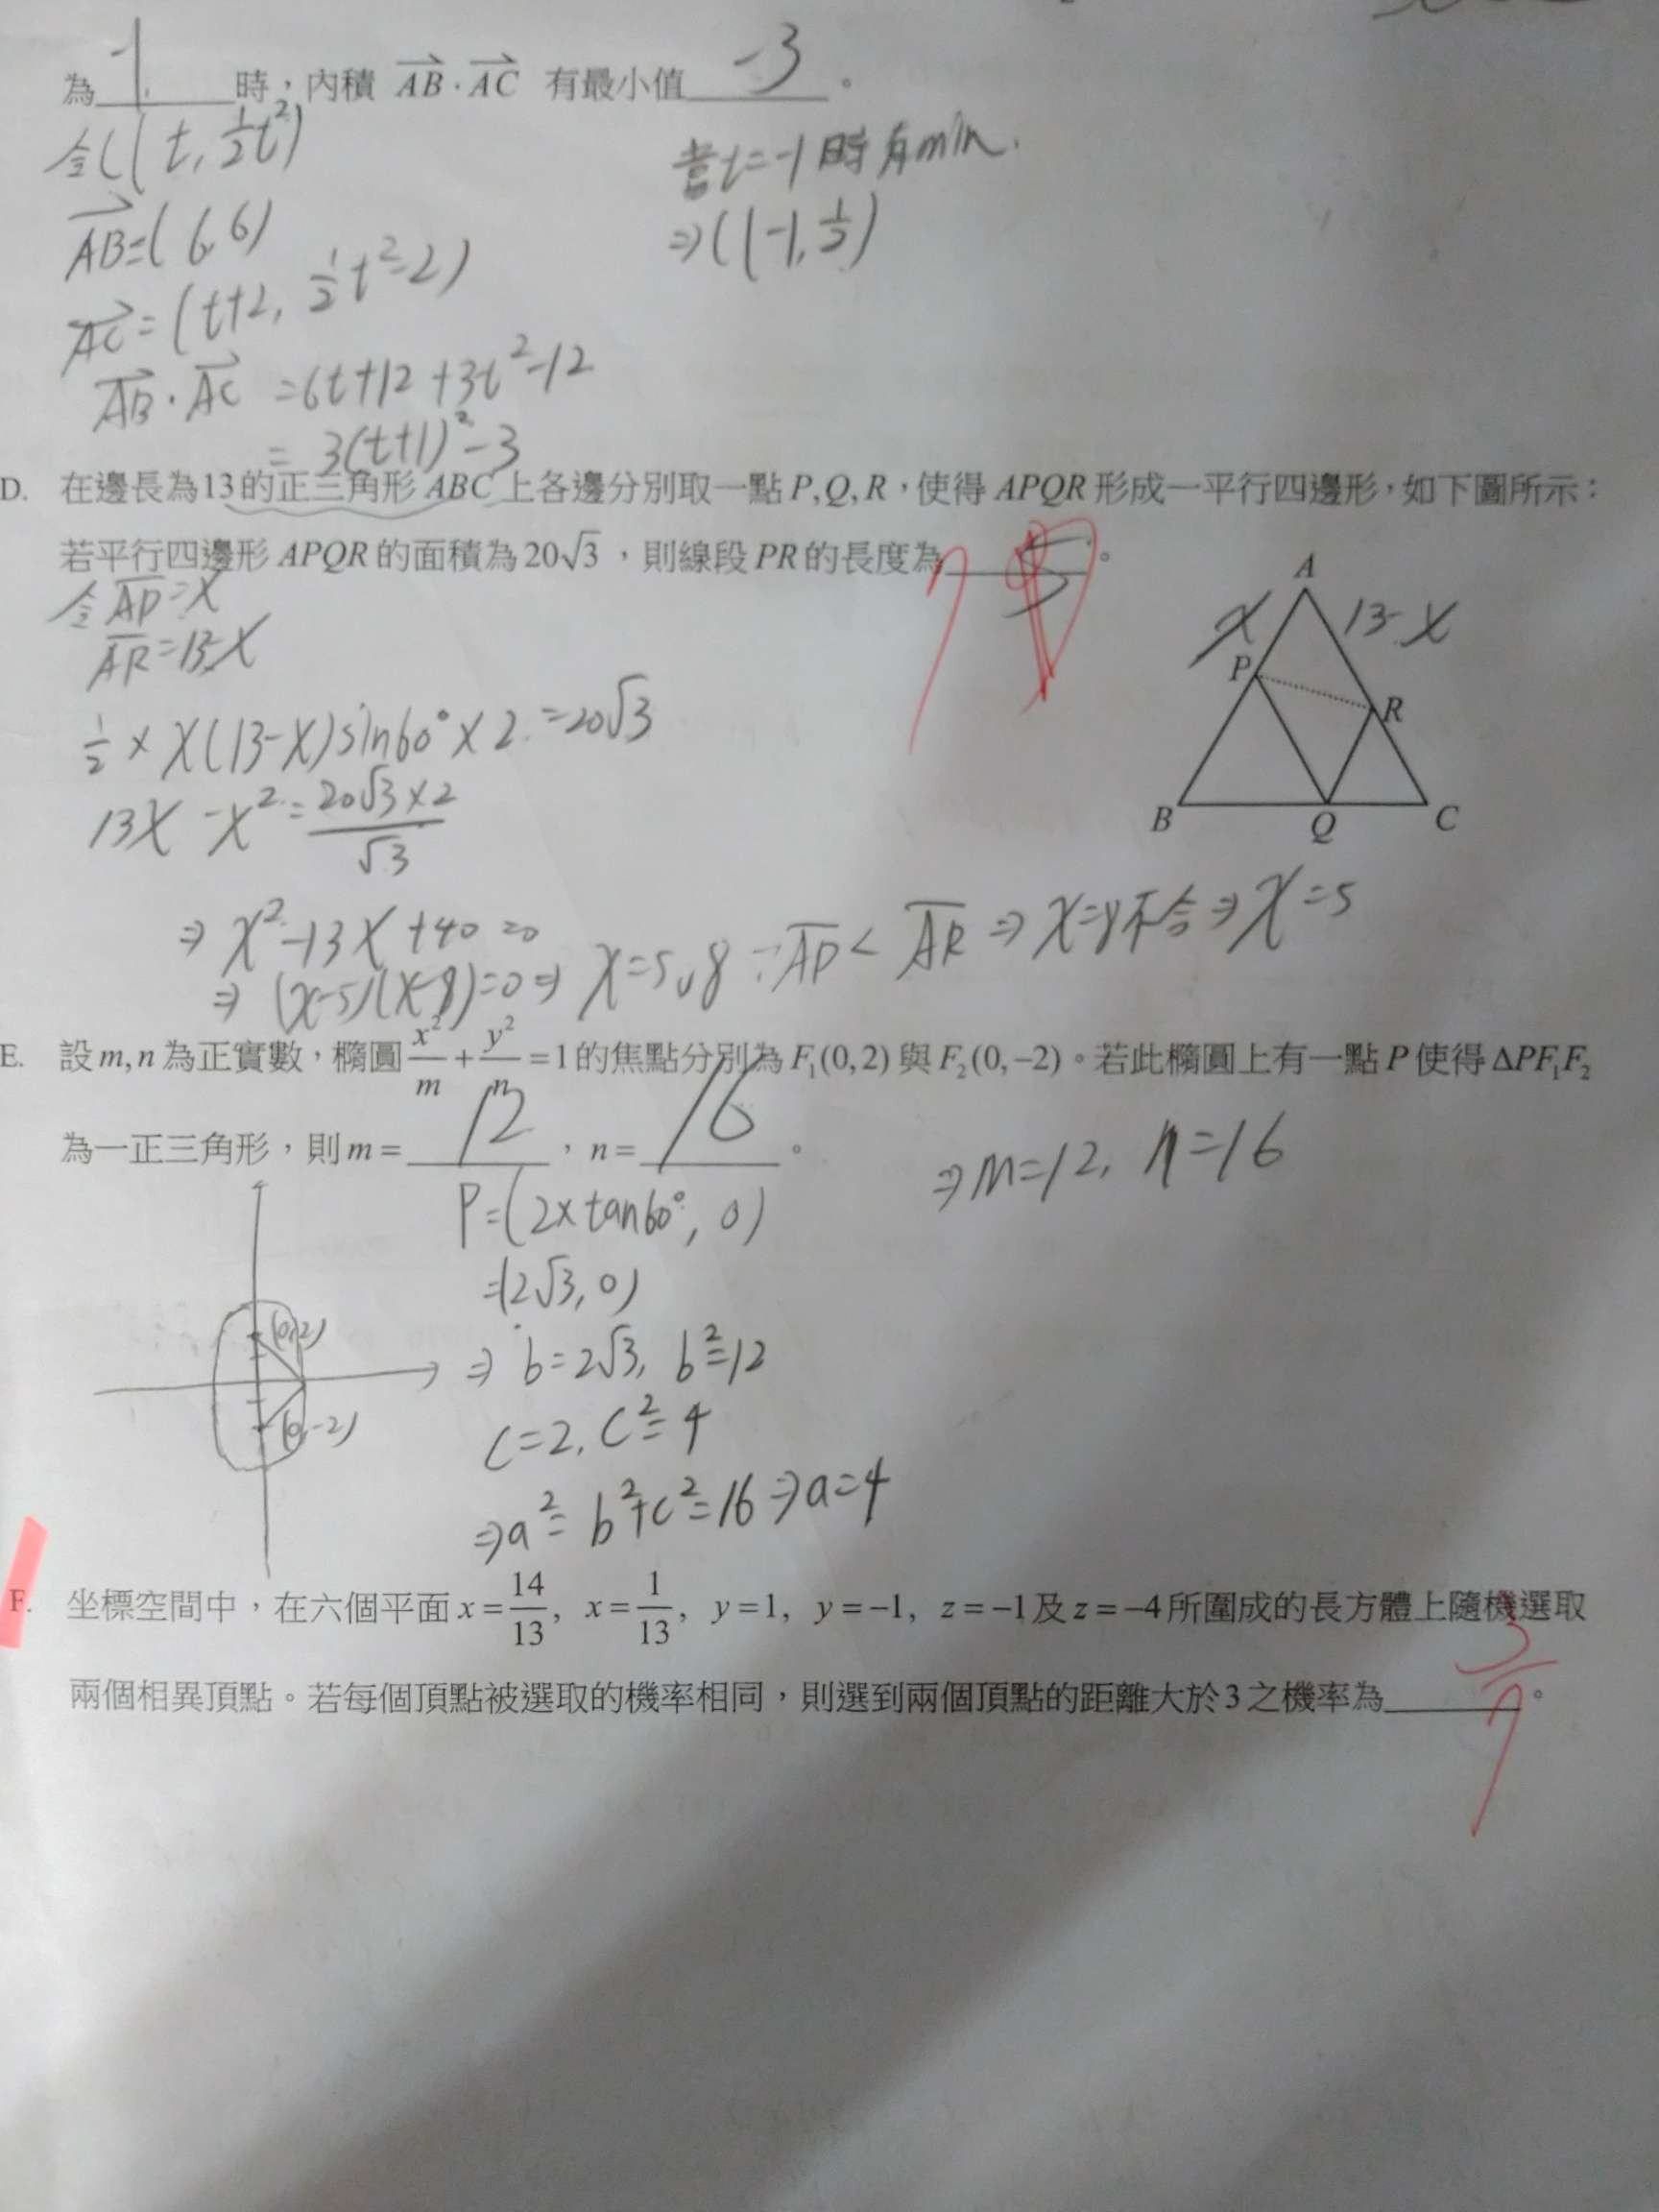 為 -1 時，內積 AB · AC 有最小值 -3 。
令C(t, 1/2 t²)
當t=-1時有min.
AB=(6,6)
⇒C(-1, 1/2)
AC=(t+2, 1/2 t²-2)
AB·AC =6t+12+3t²-12
= 3(t+1)²-3
D. 在邊長為13的正三角形 ABC 上各邊分別取一點 P,Q,R，使得 APQR 形成一平行四邊形，如下圖所示：
若平行四邊形 APQR 的面積為 20√3，則線段 PR 的長度為 5 。
7
令AP=x
AR=13-x
A
x
13-x
P
R
B
Q
C
1/2 × x(13-x)sin60°×2=20√3
13x-x²=20√3×2/√3
⇒ x²-13x+40=0
⇒ (x-5)(x-8)=0⇒ x=5,8 ∵AP<AR ⇒x=8不合⇒x=5
E. 設 m,n 為正實數，橢圓 x²/m + y²/n =1 的焦點分別為 F₁(0,2) 與 F₂(0,−2)。若此橢圓上有一點 P 使得 ΔPF₁F₂
為一正三角形，則 m = 12 ，n = 16 。
⇒m=12, n=16
P=(2×tan60°, 0)
=(2√3, 0)
(0,2)
⇒ b=2√3, b²=12
(0,-2)
c=2, c²=4
⇒a²=b²+c²=16⇒a=4
F. 坐標空間中，在六個平面 x=14/13, x=1/13, y=1, y=−1, z=−1及 z=−4 所圍成的長方體上隨機選取
兩個相異頂點。若每個頂點被選取的機率相同，則選到兩個頂點的距離大於 3 之機率為 3/7 。